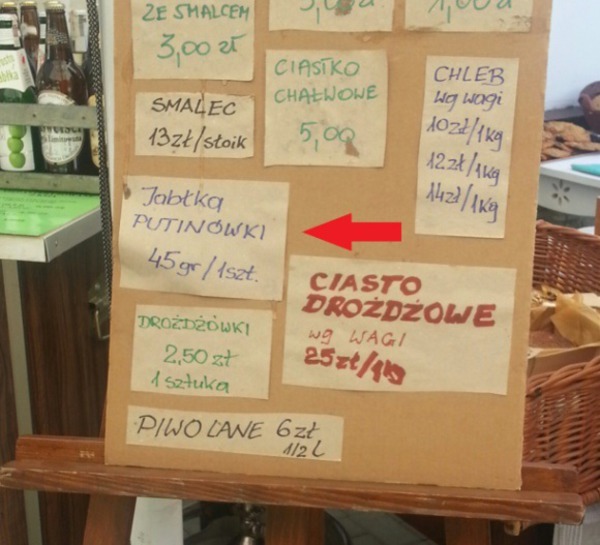 ZE SMALCEM
3,00 zł
1,00 zł
CIASTKO
CHAŁWOWE
5,00
CHLEB
wg wagi
10zł/1kg
12zł/1kg
14zł/1kg
SMALEC
13zł/słoik
Jabłka
PUTINÓWKI
45gr/1szt.
CIASTO
DROŻDŻOWE
wg WAGI
25zł/1kg
DROŻDŻÓWKI
2,50 zł
1 sztuka
PIWO LANE 6zł
1/2 L